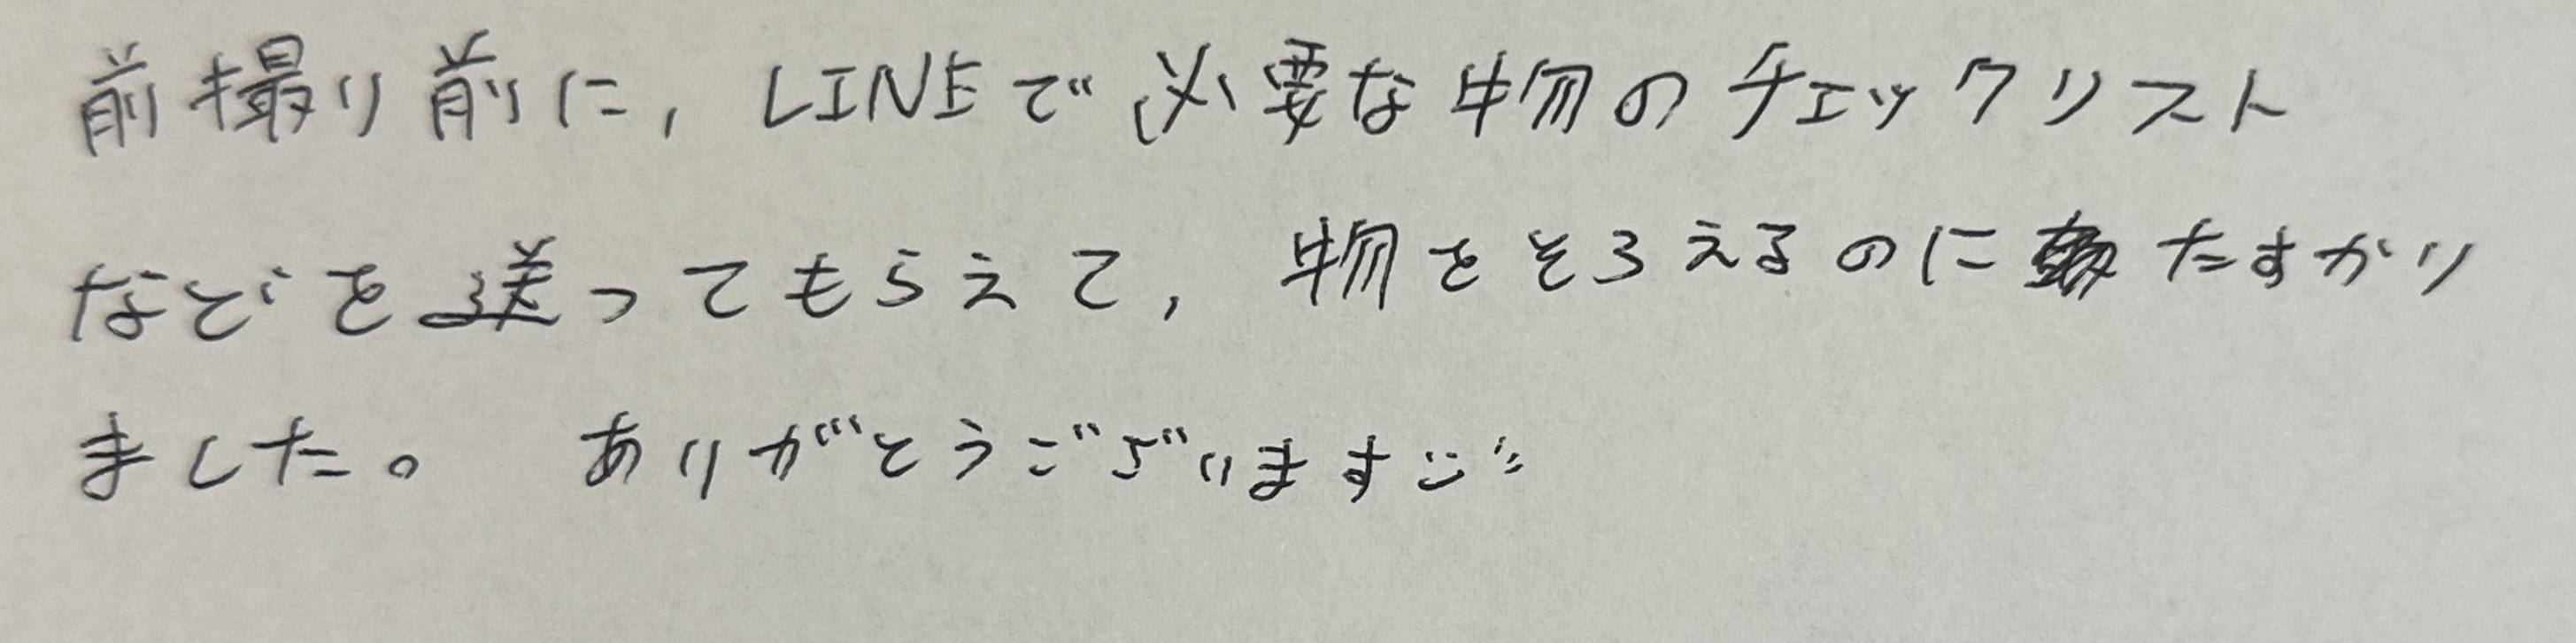 前撮り前に, LINEで必要な物のチェックリスト
などを送ってもらえて, 物をそろえるのにたすかり
ました。 ありがとうございます